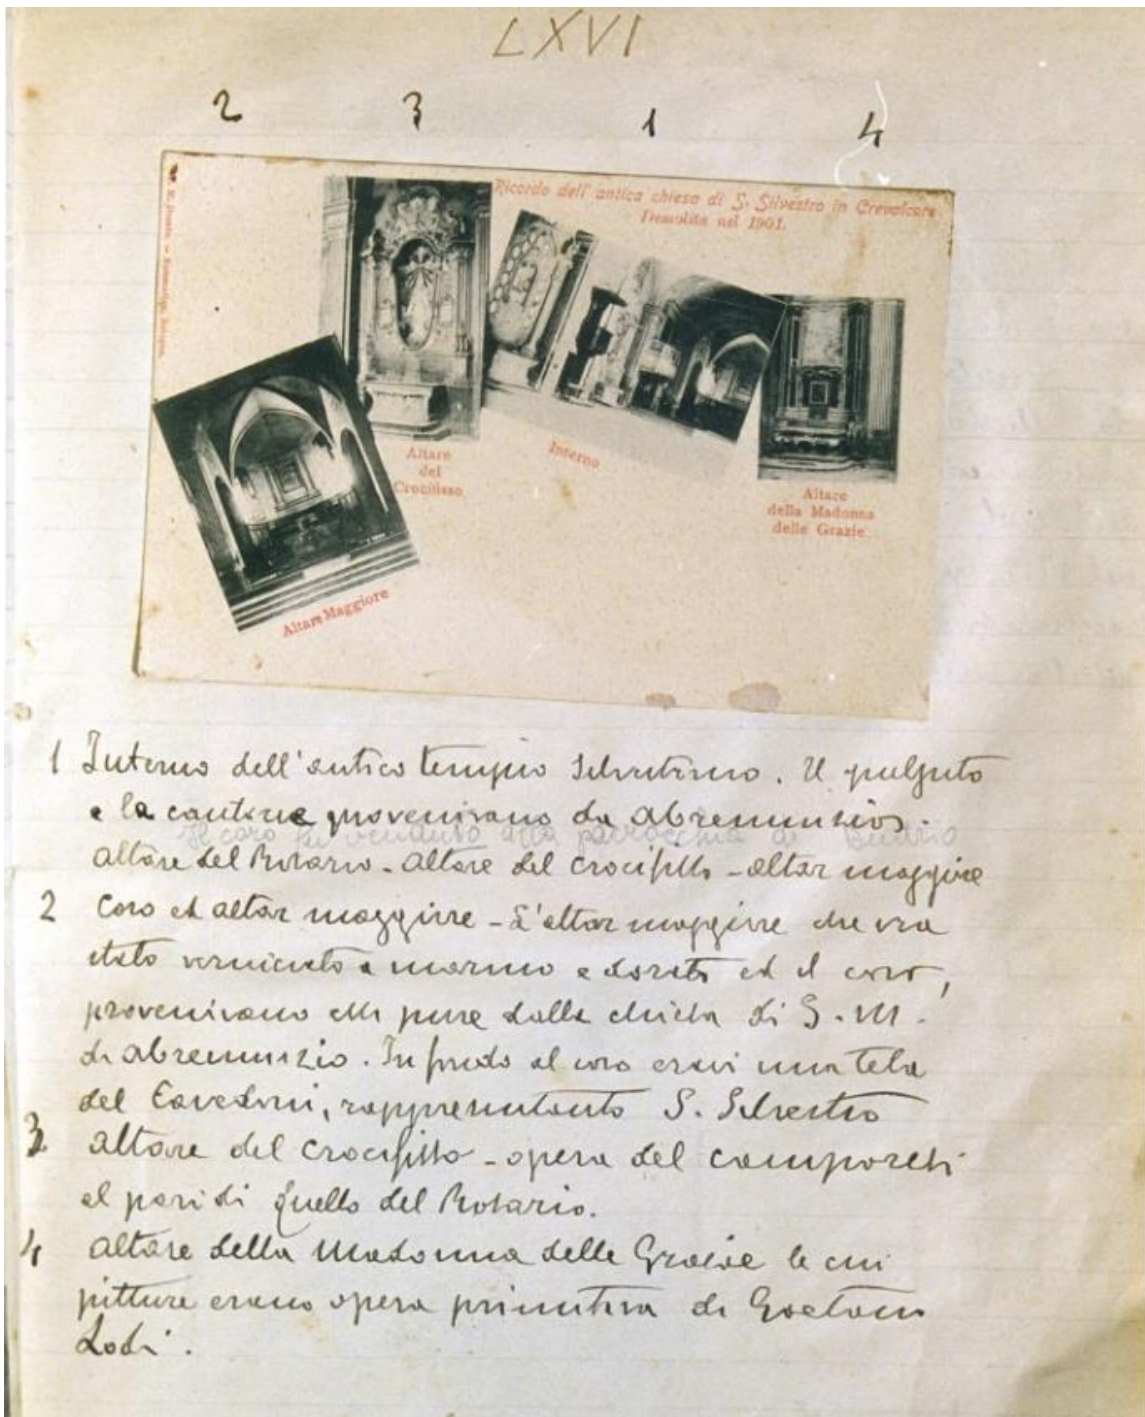 LXVI
2 3 1 4
Ricordo dell'antica chiesa di S. Silvestro in Crevalcore
Demolita nel 1901.
Altare
del
Crocifisso
Interno
Altare
della Madonna
delle Grazie
Altare Maggiore
1 Interno dell'antico tempio Silvestrino. Il pulpito
e la cantoria provenivano da Abrenunzio.
Il coro fu venduto alla parrocchia di
Altare del Rosario - Altare del Crocifisso - Altar maggiore
2 Coro ed altar maggiore - L'altar maggiore che era
stato verniciato a marmo e dorato ed il coro,
provenivano essi pure dalla chiesa di S. M.
di Abrenunzio. In fondo al coro eravi una tela
del Cavedoni, rappresentante S. Silvestro
3 Altare del Crocifisso - opera del Camporesi
al pari di quello del Rosario.
4 Altare della Madonna delle Grazie le cui
pitture erano opera primitiva di Gaetano
Lodi.